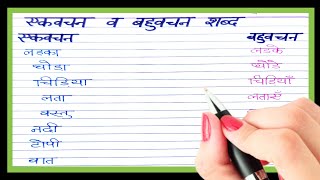 एकवचन व बहुवचन शब्द
एकवचन बहुवचन
लडका लडके
घोडा घोडे
चिडिया चिडियाँ
लता लताएँ
वस्तु
नदी
टोपी
बात